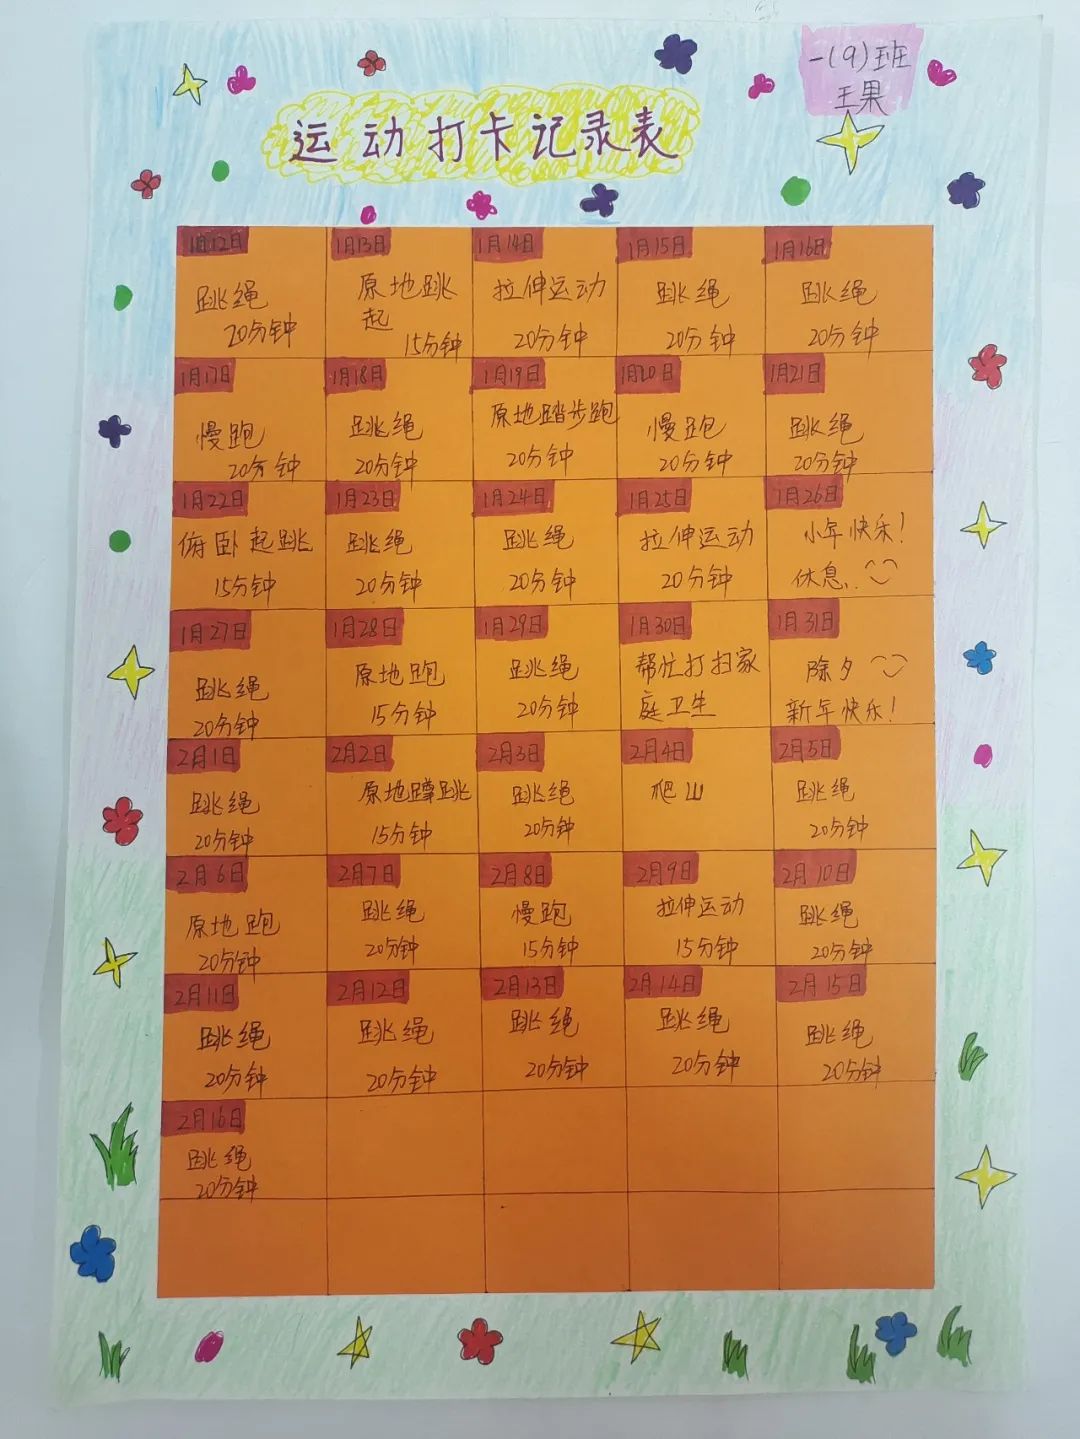 一(9)班
王果
运动打卡记录表
1月12日
跳绳
20分钟
1月13日
原地跳
起
15分钟
1月14日
拉伸运动
20分钟
1月15日
跳绳
20分钟
1月16日
跳绳
20分钟
1月17日
慢跑
20分钟
1月18日
跳绳
20分钟
1月19日
原地踏步跑
20分钟
1月20日
慢跑
20分钟
1月21日
跳绳
20分钟
1月22日
俯卧起跳
15分钟
1月23日
跳绳
20分钟
1月24日
跳绳
20分钟
1月25日
拉伸运动
20分钟
1月26日
小年快乐!
休息..
1月27日
跳绳
20分钟
1月28日
原地跑
15分钟
1月29日
跳绳
20分钟
1月30日
帮忙打扫家
庭卫生
1月31日
除夕
新年快乐!
2月1日
跳绳
20分钟
2月2日
原地蹲跳
15分钟
2月3日
跳绳
20分钟
2月4日
爬山
2月5日
跳绳
20分钟
2月6日
原地跑
20分钟
2月7日
跳绳
20分钟
2月8日
慢跑
15分钟
2月9日
拉伸运动
15分钟
2月10日
跳绳
20分钟
2月11日
跳绳
20分钟
2月12日
跳绳
20分钟
2月13日
跳绳
20分钟
2月14日
跳绳
20分钟
2月15日
跳绳
20分钟
2月16日
跳绳
20分钟